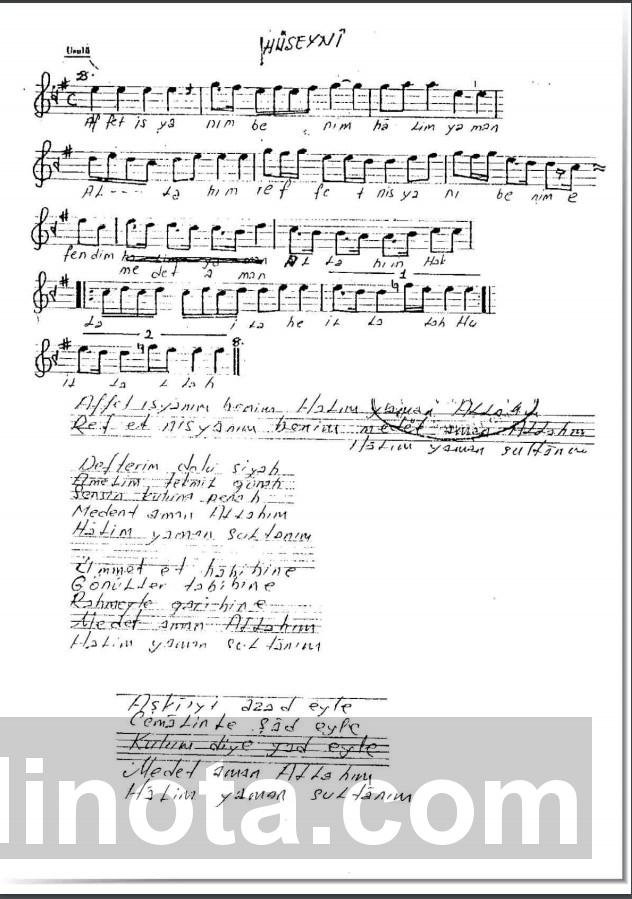 HÜSEYNÎ
Usulü
Af fet is ya nım be nim hâ lim ya man
AL--- La hım ref fe t nis ya nı be nim e
fen dim
me det a man AL La hım Hak
1
La i La he iL La Lah Hu
2
iL La L La h
Affet isyanım benim Halim yaman ALLahım
Ref et nisyanım benim medet aman ALLahım
Halim yaman sultânım
Defterim dolu siyah
Amelim tekmil günah
Sensin kuluna penah
Medent aman ALLahım
Hâlim yaman suLtanım
Ümmet et habibine
GönüLLer tabibine
Rahmeyle garibine
Medet aman ALLahım
HaLim yaman suLtânım
Aşkîyi azad eyle
CemâLinLe şâd eyle
Kulum diye yad eyle
Medet aman ALLahım
Hâlim yaman suLtânım
dinota.com